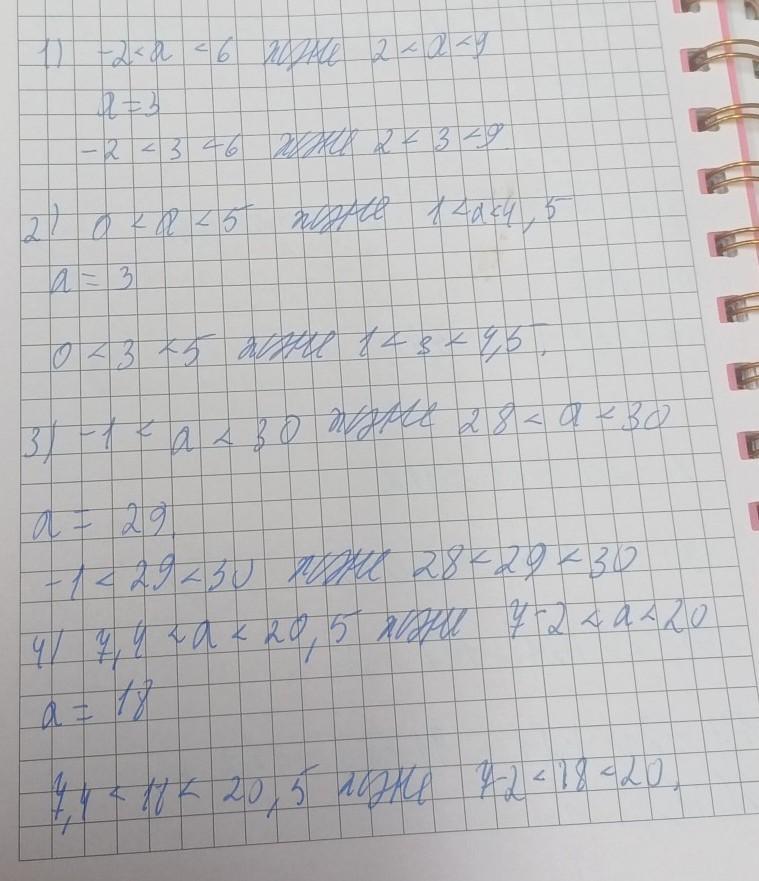 1) -2<a <6 және 2<a<9
a=3
-2 <3 <6 және 2<3<9
2) 0<a<5 және 1<a<4,5
a=3
0<3<5 және 1<3<4,5.
3) -1<a<30 және 28<a<30
a=29
-1<29<30 және 28<29<30
4) 7,4<a<20,5 және 7-2<a<20
a=18
7,4<18<20,5 және 7-2<18<20.